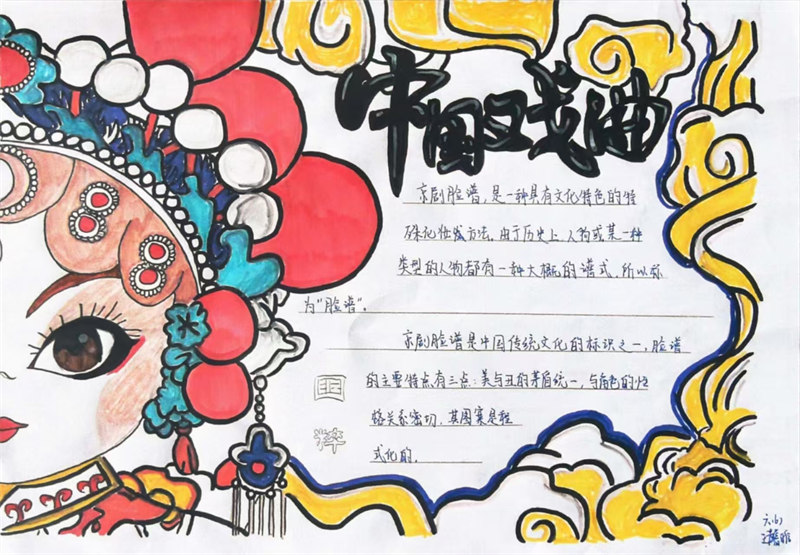 中国戏曲
京剧脸谱,是一种具有文化特色的特
殊化妆方法.由于历史上人物或某一种
类型的人物都有一种大概的谱式,所以称
为"脸谱"。
京剧脸谱是中国传统文化的标识之一,脸谱
的主要特点有三点:美与丑的矛盾统一,与角色的性
格关系密切,其图案是程
式化的.
国
粹